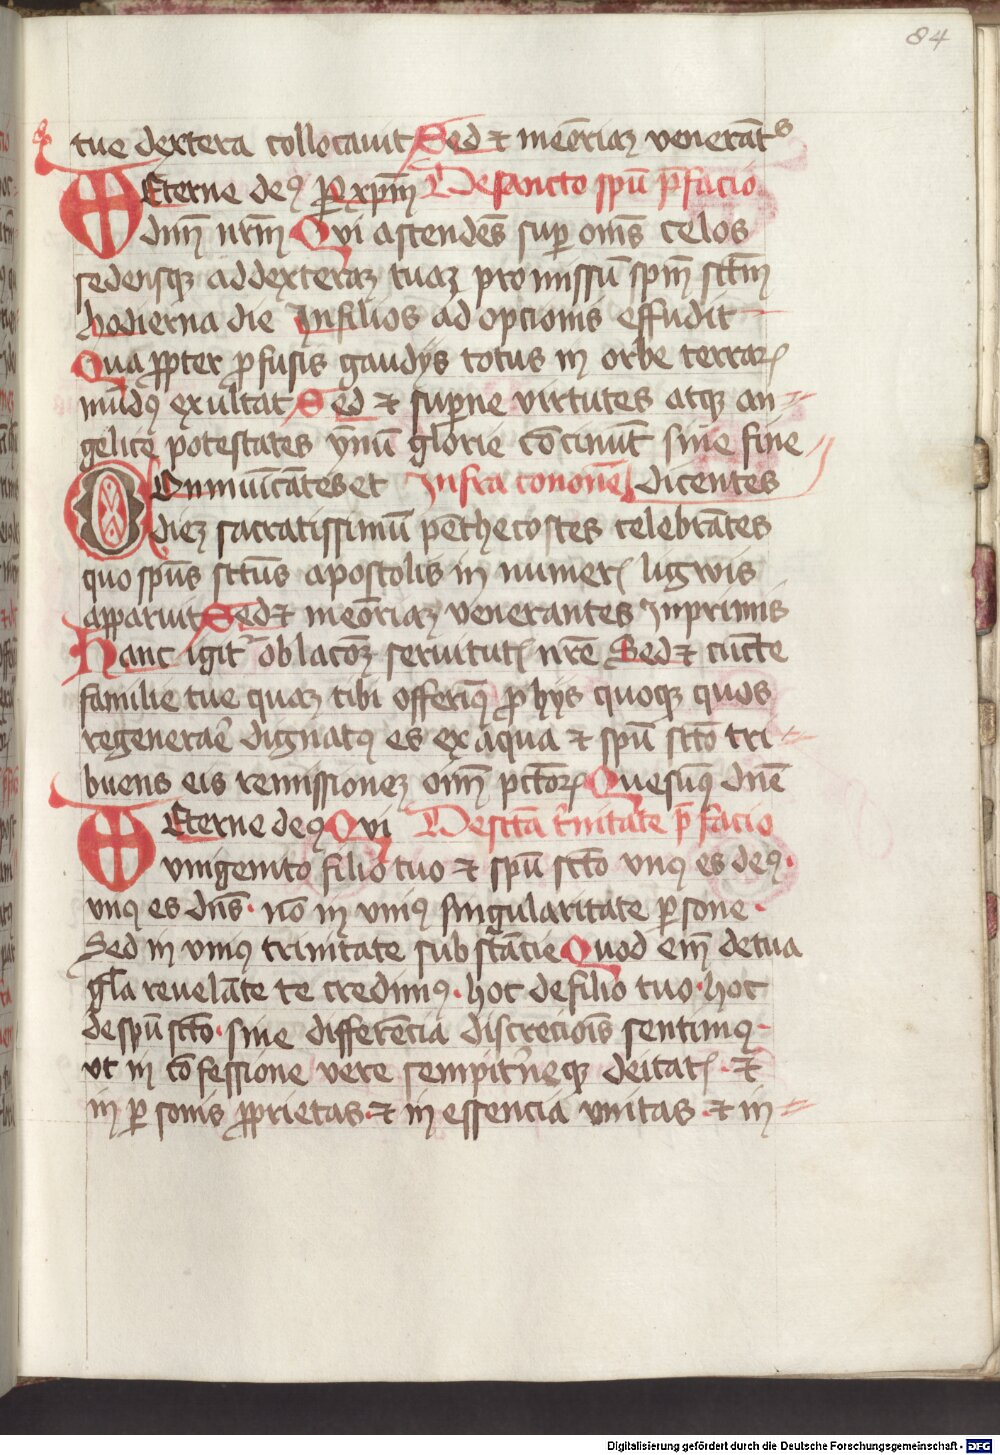 84
tue dextera collocauit Sed ⁊ meōriaꝫ venerāt⁹
Eterne deꝰ ꝑ xp̄m De sancto spū p̄facio
dn̄m nr̄m Qvi ascendēs suꝑ om̄s celos
sedensqꝫ ad dexteraꝫ tuaꝫ promissū sp̄m sc̄tm̄
hodierna die Jn filios adopcionis effudit
Qua ꝓpter ꝓfusis gaudys totus in orbe terraꝝ
mūdꝰ exultat Sed ⁊ suꝑne virtutes atqꝫ an
gelice potestates ymnū glorie cōcinūt sine fine
Cōmuīcātes et Jnfra cononē dicentes
dieꝫ sacratissimū pēthecostes celebrātes
quo spūs sctūs apostolis in numerꝭ ligwis
apparuit Sed ⁊ meōriaꝫ venerantes Jnprimis
Hanc igit᷑ oblacōꝫ seruitutꝭ nr̄e Sed ⁊ cūcte
familie tue quaꝫ tibi offerimꝰ ꝓ hys quoqꝫ quos
regenerar̄e dignatꝰ es ex aqua ⁊ spū sctō tri
buens eis remissioneꝫ oīm̄ pctōꝝ Quesumꝰ dn̄e
Eterne deꝰ Qvi De sctā t̓nitate p̄facio
vnigenito filio tuo ⁊ spū sctō vnꝰ es deꝰ·
vnꝰ es dn̄s· nō in vniꝰ singularitate ꝑsone·
Sed in vniꝰ trinitate substācie Quod em̄ de tua
gl̄a reuelāte te credimꝰ· hoc de filio tuo· hoc
de spū sctō· sine differēcia discrecioīs sentimꝰ
vt in cōfessione vere sempit̓neqꝫ deitatꝭ· ⁊
in ꝑsonis ꝓprietas· ⁊ in essencia vnitas· ⁊ in
Digitalisierung gefördert durch die Deutsche Forschungsgemeinschaft - DFG